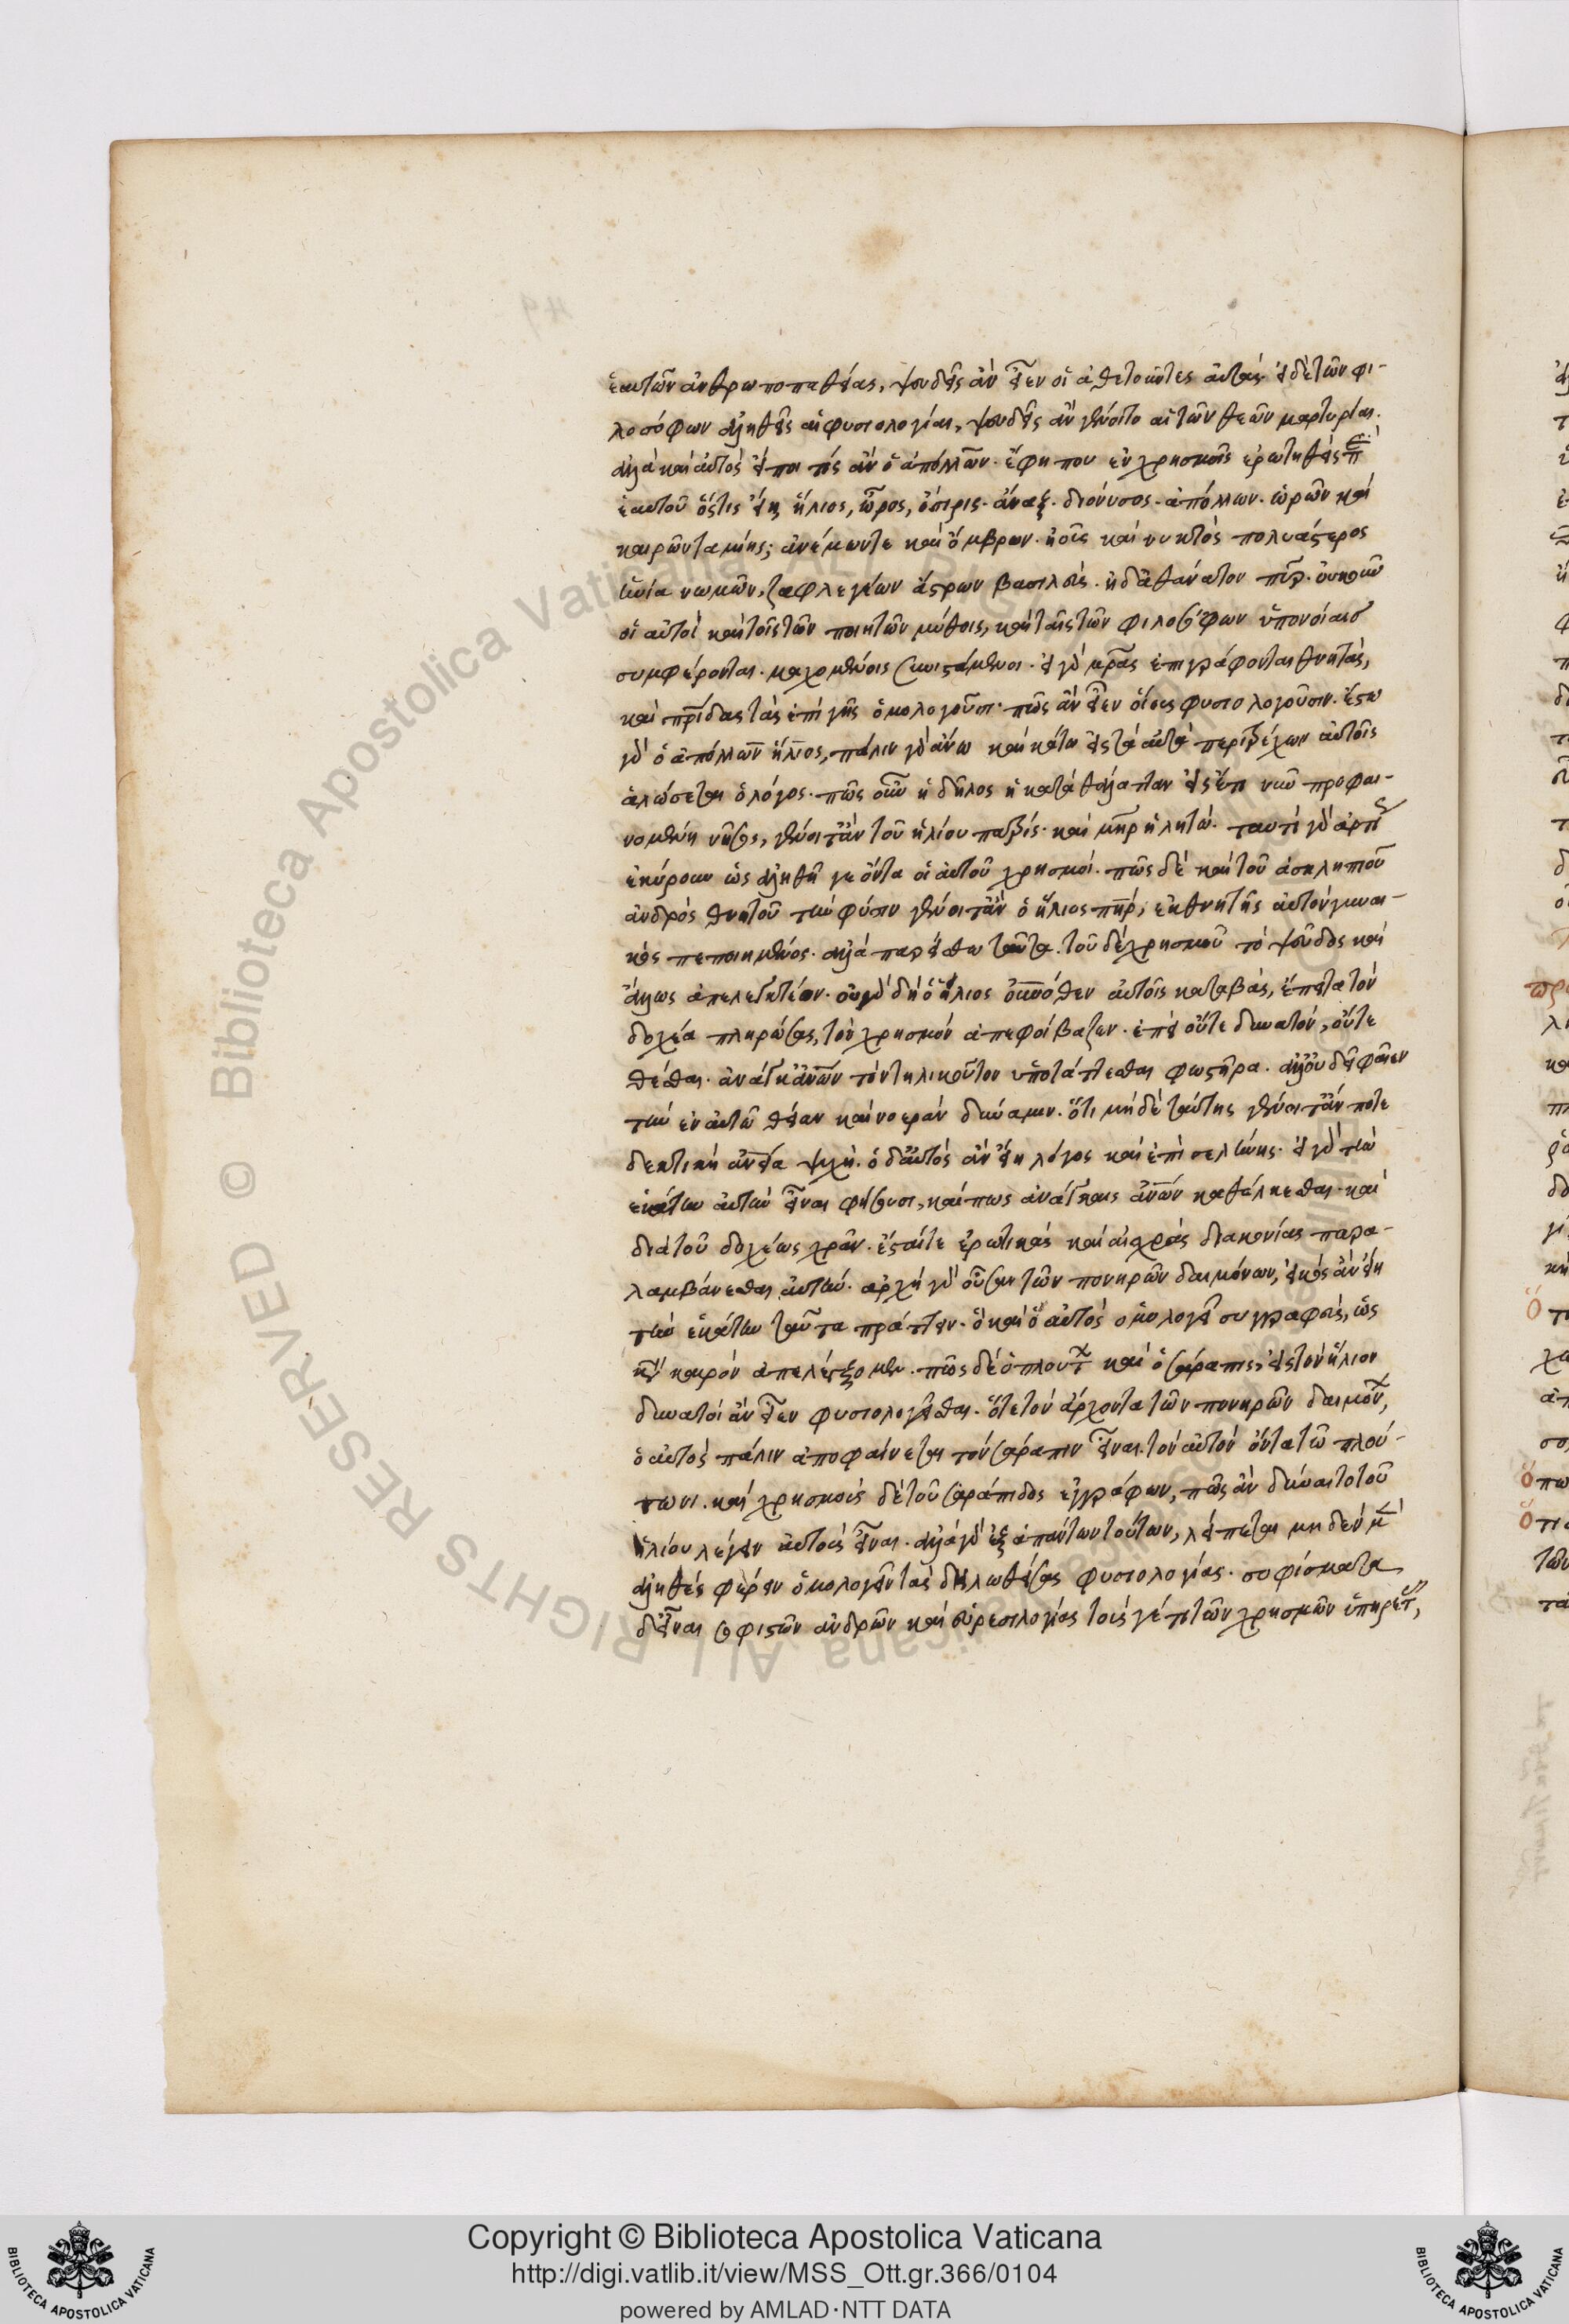 ἑαυτῶν ἀνθρωποπαθείας, ψευδεῖς ἂν εἶεν οἱ ἀθετοῦντες αὐτάς· εἰ δὲ τῶν φι-
λοσόφων ἀληθεῖς αἱ φυσιολογίαι, ψευδεῖς ἂν γένοιντο αἱ τῶν θεῶν μαρτυρίαι.
ἀλλὰ καὶ αὐτὸς εἴποι τις ἂν ὁ ἀπόλλων· ἔφη που ἐν χρησμοῖς ἐρωτηθεὶς περὶ
ἑαυτοῦ ὅστις εἴη, ἥλιος, ὧρος, ὄσιρις· ἄναξ· διόνυσος· ἀπόλλων· ὡρῶν καὶ
καιρῶν ταμίης; ἀνέμων τε καὶ ὄμβρων· ἠοῦς καὶ νυκτὸς πολυάστερος
ἡνία νωμῶν, ζαφλεγέων ἄστρων βασιλεὺς· ἠδ' ἀθάνατον πῦρ· οὐκοῦν
οἱ αὐτοὶ καὶ τοῖς τῶν ποιητῶν μύθοις, καὶ ταῖς τῶν φιλοσόφων ὑπονοίαις
συμφέρονται· μαχομένοις συνιστάμενοι· εἰ γὰρ μητέρας ἐπιγράφονται θνητὰς,
καὶ πατρίδας τὰς ἐπὶ γῆς ὁμολογοῦσι· πῶς ἂν εἶεν οἵους φυσιολογοῦσιν· ἔστω
γὰρ ὁ ἀπόλλων ἥλιος, πάλιν γὰρ ἄνω καὶ κάτω εἰς τὰ αὐτὰ περιτρέχων αὐτοῖς
ἁλώσεται ὁ λόγος· πῶς οὖν ἡ δῆλος ἡ κατὰ θάλατταν εἰς ἔτι νῦν προφαι-
νομένη νῆσος, γένοιτ' ἂν τοῦ ἡλίου πατρίς· καὶ μήτηρ ἡ λητώ· ταυτὶ γὰρ ἀρτίως
ἐκύρουν ὡς ἀληθῆ γε ὄντα οἱ αὐτοῦ χρησμοί· πῶς δὲ καὶ τοῦ ἀσκληπιοῦ
ἀνδρὸς θνητοῦ τὴν φύσιν γένοιτ' ἂν ὁ ἥλιος πατήρ, ἐκ θνητῆς αὐτὸν γυναι-
κὸς πεποιημένος· ἀλλὰ παρείσθω ταῦτα· τοῦ δὲ χρησμοῦ τὸ ψεῦδος καὶ
ἄλλως ἀπελεγκτέον· οὐ γὰρ δὴ ὁ ἥλιος οὐρανόθεν αὐτοῖς καταβὰς, ἔπειτα τὸν
δοχέα πληρώσας, τὸν χρησμὸν ἀπεφοίβαζεν· ἐπεὶ οὔτε δυνατὸν, οὔτε
θέσθαι· ἀνάγκῃ ἀνθρώπων τὸν τηλικοῦτον ὑποτάττεσθαι φωστῆρα· ἀλλ' οὐδ' εἰ φαῖεν
τὴν ἐν αὐτῷ θείαν καὶ νοερὰν δύναμιν· ὅτι μηδὲ ταύτης γένοιτ' ἄν ποτε
δεκτικὴ ἀνθρωπεία ψυχή· ὁ δ' αὐτὸς ἂν εἴη λόγος καὶ ἐπὶ σελήνης· εἰ γὰρ τὴν
ἑκάτην αὐτὴν εἶναι φήσουσι, καί πως ἀνάγκαις ἀνθρώπων καθέλκεσθαι· καὶ
διὰ τοῦ δοχέως χρᾶν· ἔς τε τὰς ἐρωτικὰς καὶ αἰσχρὰς διακονίας παρα-
λαμβάνεσθαι αὐτήν· ἀρχὴ γὰρ οὖσαν τῶν πονηρῶν δαιμόνων, εἰκὸς ἂν εἴη
τὴν ἑκάτην ταῦτα πράττειν· ὃ καὶ ὁ αὐτὸς ὁμολογεῖ συγγραφεὺς, ὡς
κατὰ καιρὸν ἀπελέγξομεν· πῶς δὲ ὁ πλούτων καὶ ὁ σάραπις, εἰς τὸν ἥλιον
δυνατοὶ ἂν εἶεν φυσιολογεῖσθαι· ὅτε τὸν ἄρχοντα τῶν πονηρῶν δαιμόνων,
ὁ αὐτὸς πάλιν ἀποφαίνεται τὸν σάραπιν εἶναι· τὸν αὐτὸν ὄντα τῷ πλού-
τωνι· καὶ χρησμοὺς δὲ τοῦ σαράπιδος ἐγγράφων, πῶς ἂν δύναιτο τοῦ
ἡλίου λέγειν αὐτοὺς εἶναι· ἀλλὰ γὰρ ἐξ ἁπάντων τούτων, λείπεται μηδὲν μὲν
ἀληθὲς φέρειν ὁμολογεῖν τὰς δηλωθείσας φυσιολογίας· σοφίσματα
δ' εἶναι σοφιστῶν ἀνδρῶν καὶ εὑρεσιλογίας τούς γέ τοι τῶν χρησμῶν ὑπηρέτας,
Copyright © Biblioteca Apostolica Vaticana
http://digi.vatlib.it/view/MSS_Ott.gr.366/0104
powered by AMLAD·NTT DATA